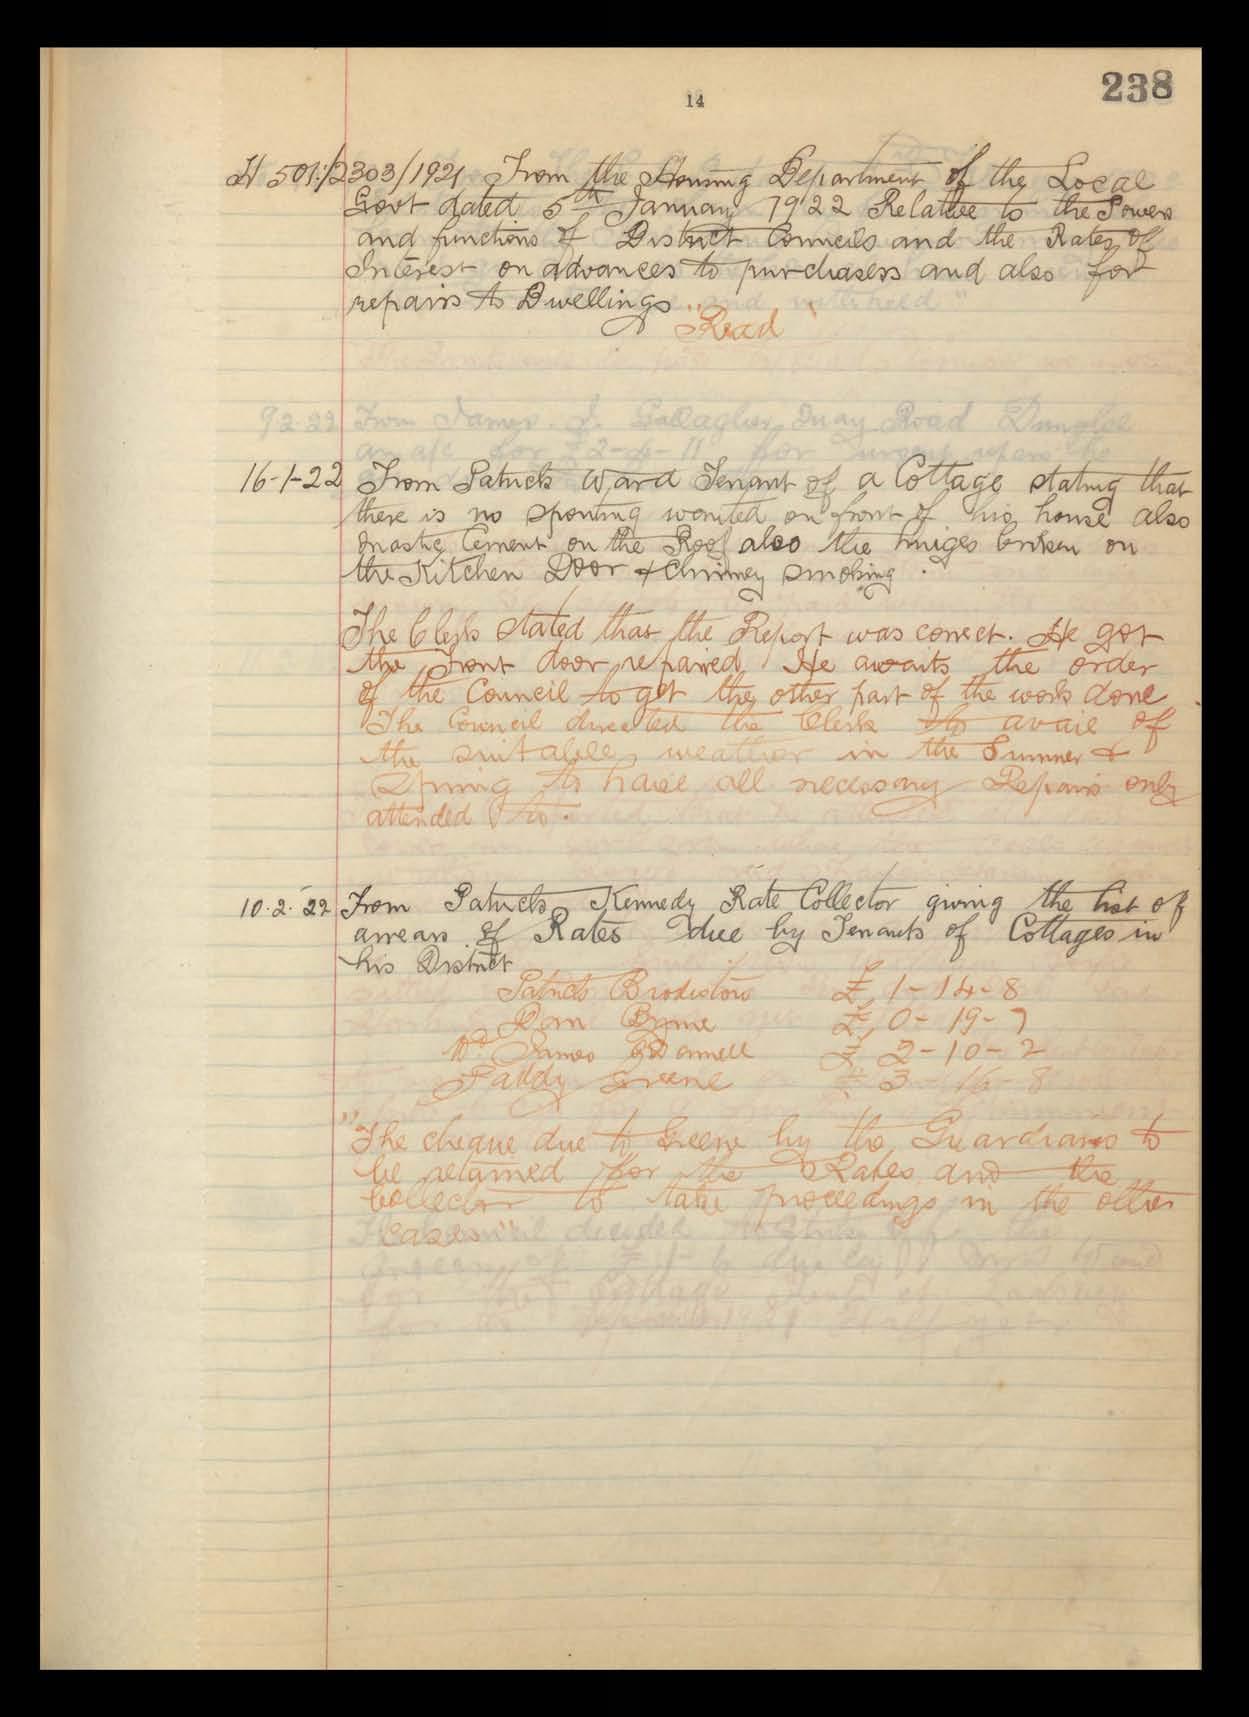 14
238
H 501:/2303/1921 From the Housing Department of the Local
Govt dated 5th January 1922 Relative to the Powers
and functions of District Councils and the Rates of
Interest on advances to purchasers and also for
repairs to Dwellings
"Read"
9-2-22 From James. J. Gallagher Quay Road Dungloe
an a/c for £2-4-11 for urgent repairs to
16-1-22 From Patrick Ward Tenant of a Cottage stating that
there is no spouting wanted on front of his house also
mastic Cement on the Roof also the hinges broken on
the Kitchen Door & Chimney smoking.
The Clerk stated that the Report was correct. He got
the Front door repaired He awaits the order
of the Council to get the other part of the work done.
The Council directed the Clerk to avail of
the suitable weather in the Summer &
Spring to have all necessary Repairs only
attended to.
10.2.22 From Patrick Kennedy Rate Collector giving the list of
arrears of Rates due by Tenants of Cottages in
his District
Patrick £ 1-14-8
Dom Byrne £ 0-19-7
James O'Donnell £ 2-10-2
Paddy Greene £ 3-16-8
"The cheque due to Greene by the Guardians to
be retained for the Rates and the
Collector to take proceedings in the other
cases"